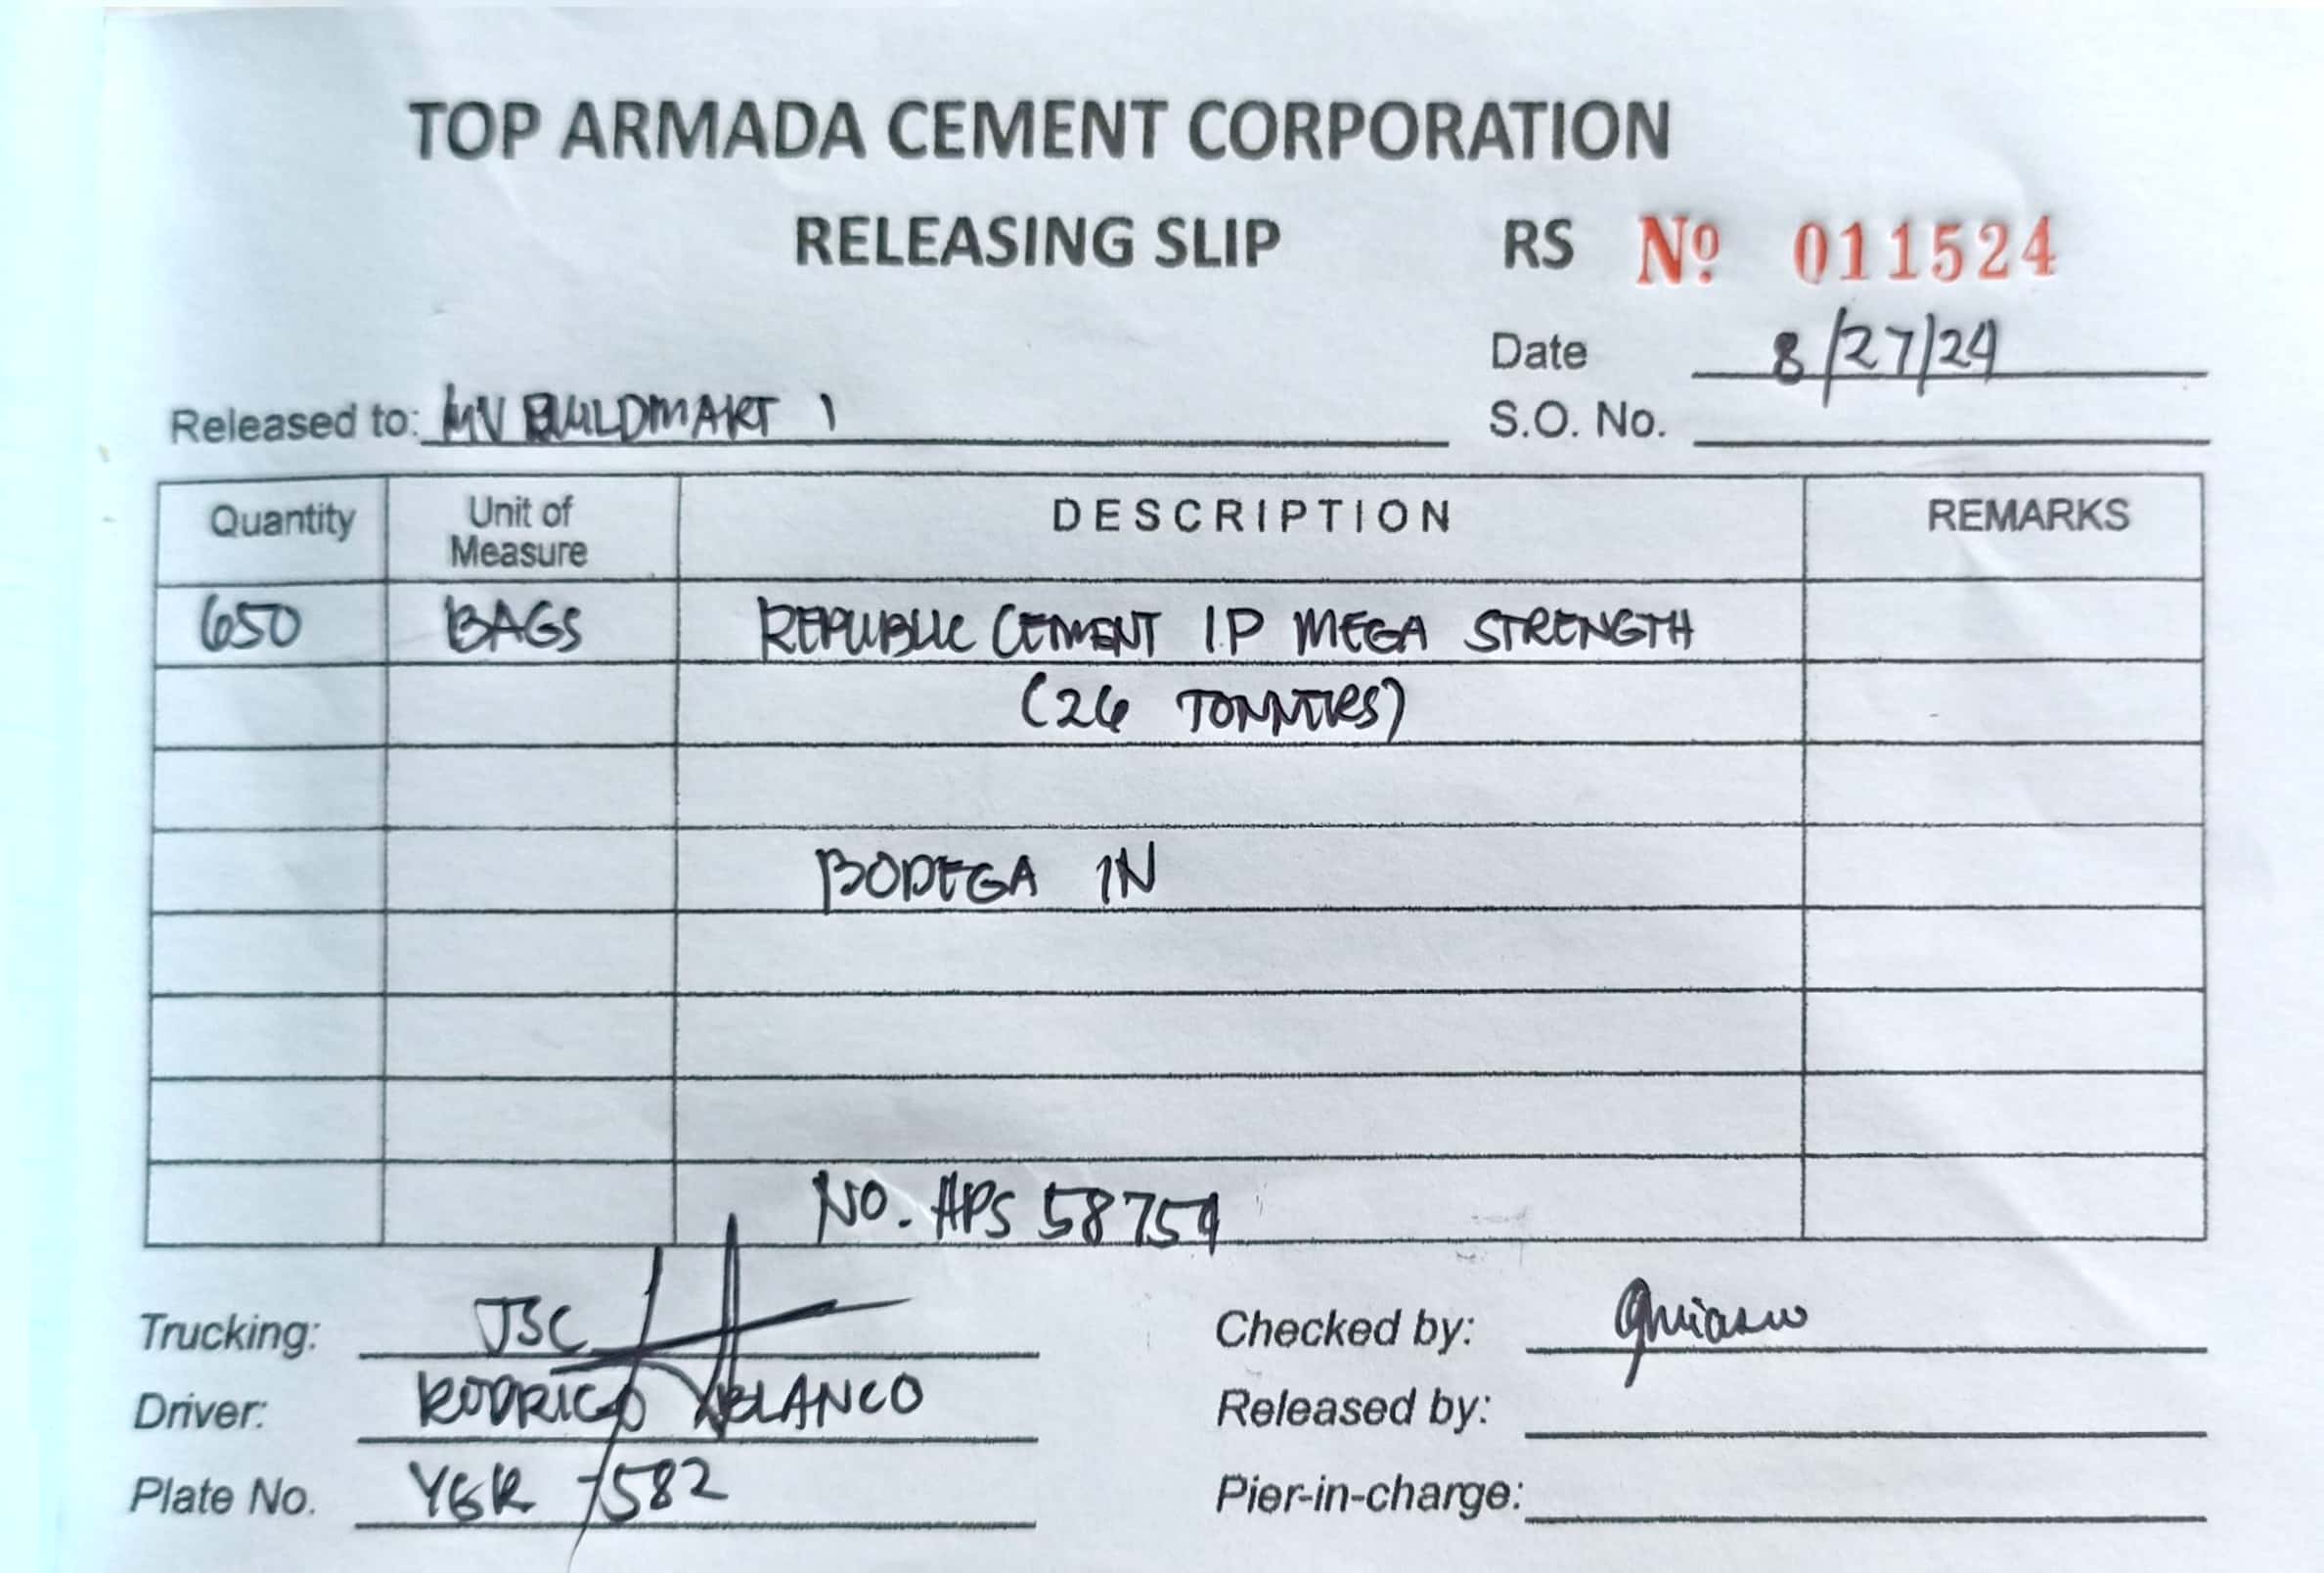 TOP ARMADA CEMENT CORPORATION
RELEASING SLIP RS Nº 011524
Date 8/27/24
Released to: MV BUILDMART 1
S.O. No.
Quantity Unit of Measure DESCRIPTION REMARKS
650 BAGS REPUBLIC CEMENT 1P MEGA STRENGTH
(26 TONNERS)
BODEGA IN
NO. APS 58754
Trucking: JSC
Checked by:
Driver: RODRIGO BLANCO
Released by:
Plate No. YGR 7582
Pier-in-charge: